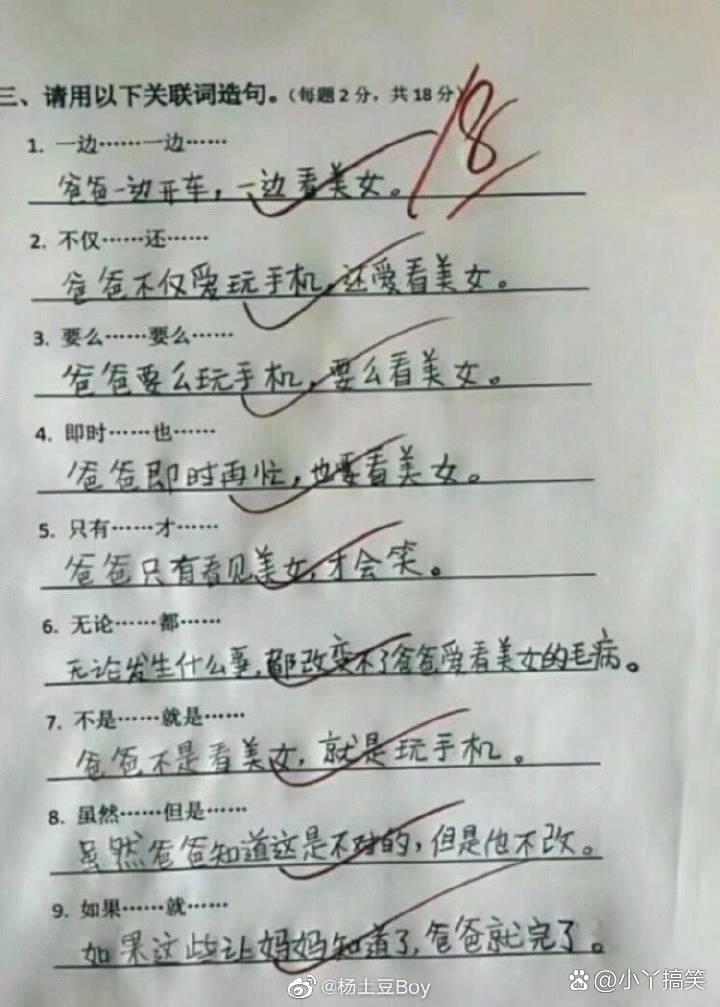 三、请用以下关联词造句。(每题2分,共18分)
18
1. 一边……一边……
爸爸一边开车,一边看美女。
2. 不仅……还……
爸爸不仅爱玩手机,还爱看美女。
3. 要么……要么……
爸爸要么玩手机,要么看美女。
4. 即时……也……
爸爸即时再忙,也要看美女。
5. 只有……才……
爸爸只有看见美女,才会笑。
6. 无论……都……
无论发生什么事,都改变不了爸爸爱看美女的毛病。
7. 不是……就是……
爸爸不是看美女,就是玩手机。
8. 虽然……但是……
虽然爸爸知道这是不对的,但是他不改。
9. 如果……就……
如果这些让妈妈知道了,爸爸就完了。
@杨土豆Boy
百 小丫搞笑